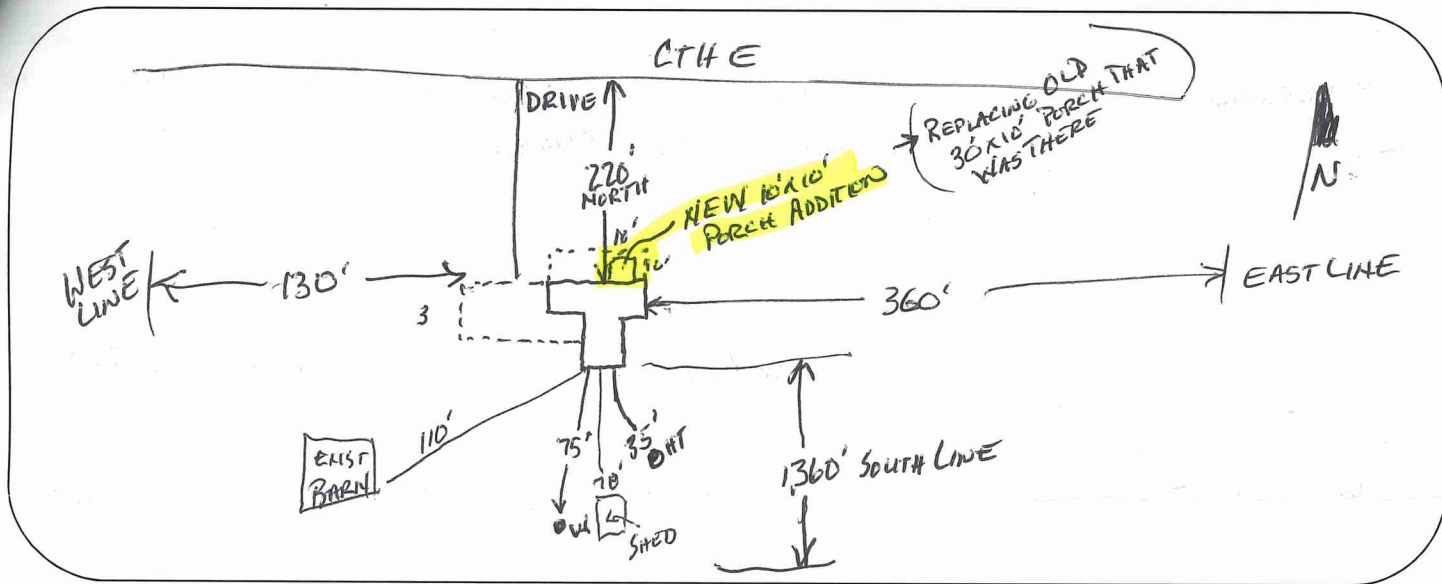 CTH E
DRIVE
220'
NORTH
REPLACING OLD
30'x10' PORCH THAT
WAS THERE
N
NEW 10'x10'
PORCH ADDITION
10'
10'
WEST
LINE
130'
360'
EAST LINE
3
110'
75'
35'
HT
70'
EXIST
BARN
SHED
1,360' SOUTH LINE